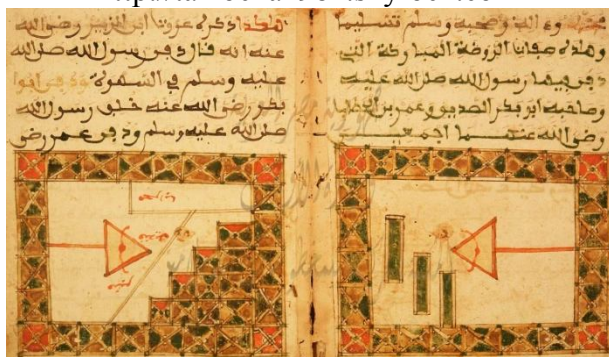 وعلى اله وصحبه وسلم تسليما
وهذه صفات الروضة المباركة التي
دفن فيها رسول الله صلى الله عليه
وصاحبه ابو بكر الصديق وعمر بن الخطاب
رضي الله عنهما اجمعين
هكذا ذكره عروة ابن الزبير رضي الله
عنه انه قال دفن رسول الله صلى الله
عليه وسلم في السهوة ودفن ابوا
بكر رضي الله عنه خلف رسول الله
صلى الله عليه وسلم ودفن عمر رضي